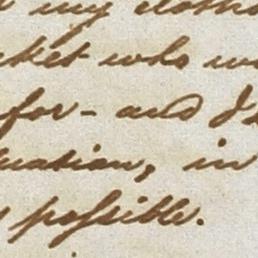 my cloths
ket who w
for - and I
uation, in
possible.